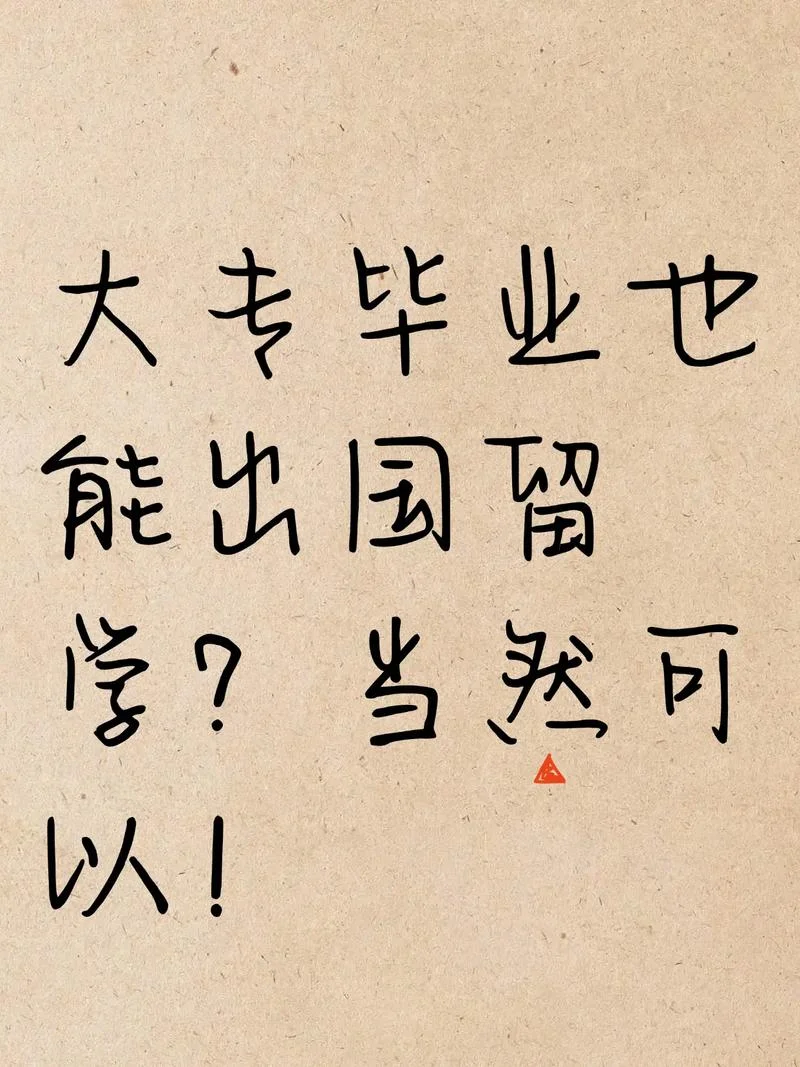 大专毕业也
能出国留
学？ 当然可
以！